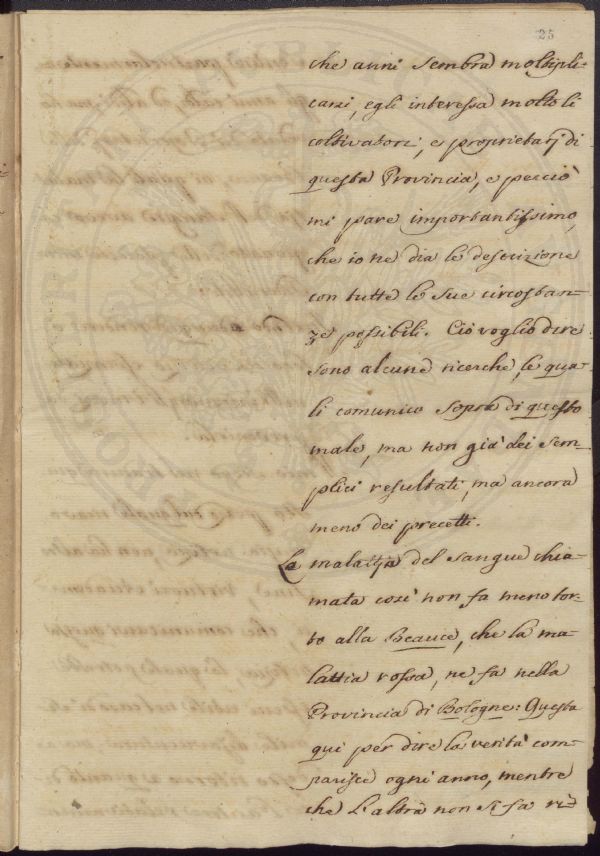 25
che anni sembra moltipli-
carsi, egli interessa molto li
coltivatori, e proprietarj di
questa Provincia, e perciò
mi pare importantissimo,
che io ne dia le descrizione
con tutte le sue circostan-
ze possibili. Ciò voglio dire
sono alcune ricerche, le qua-
li comunico sopra di questo
male, ma non già dei sem-
plici resultati, ma ancora
meno dei precetti.
La malattia del sangue chia-
mata così non fa meno tor-
to alla Beauce, che la ma-
lattia rossa, ne fa nella
Provincia di Bologne: Questa
qui per dire la verità com-
parisce ogni anno, mentre
che l'altra non si fa ve=